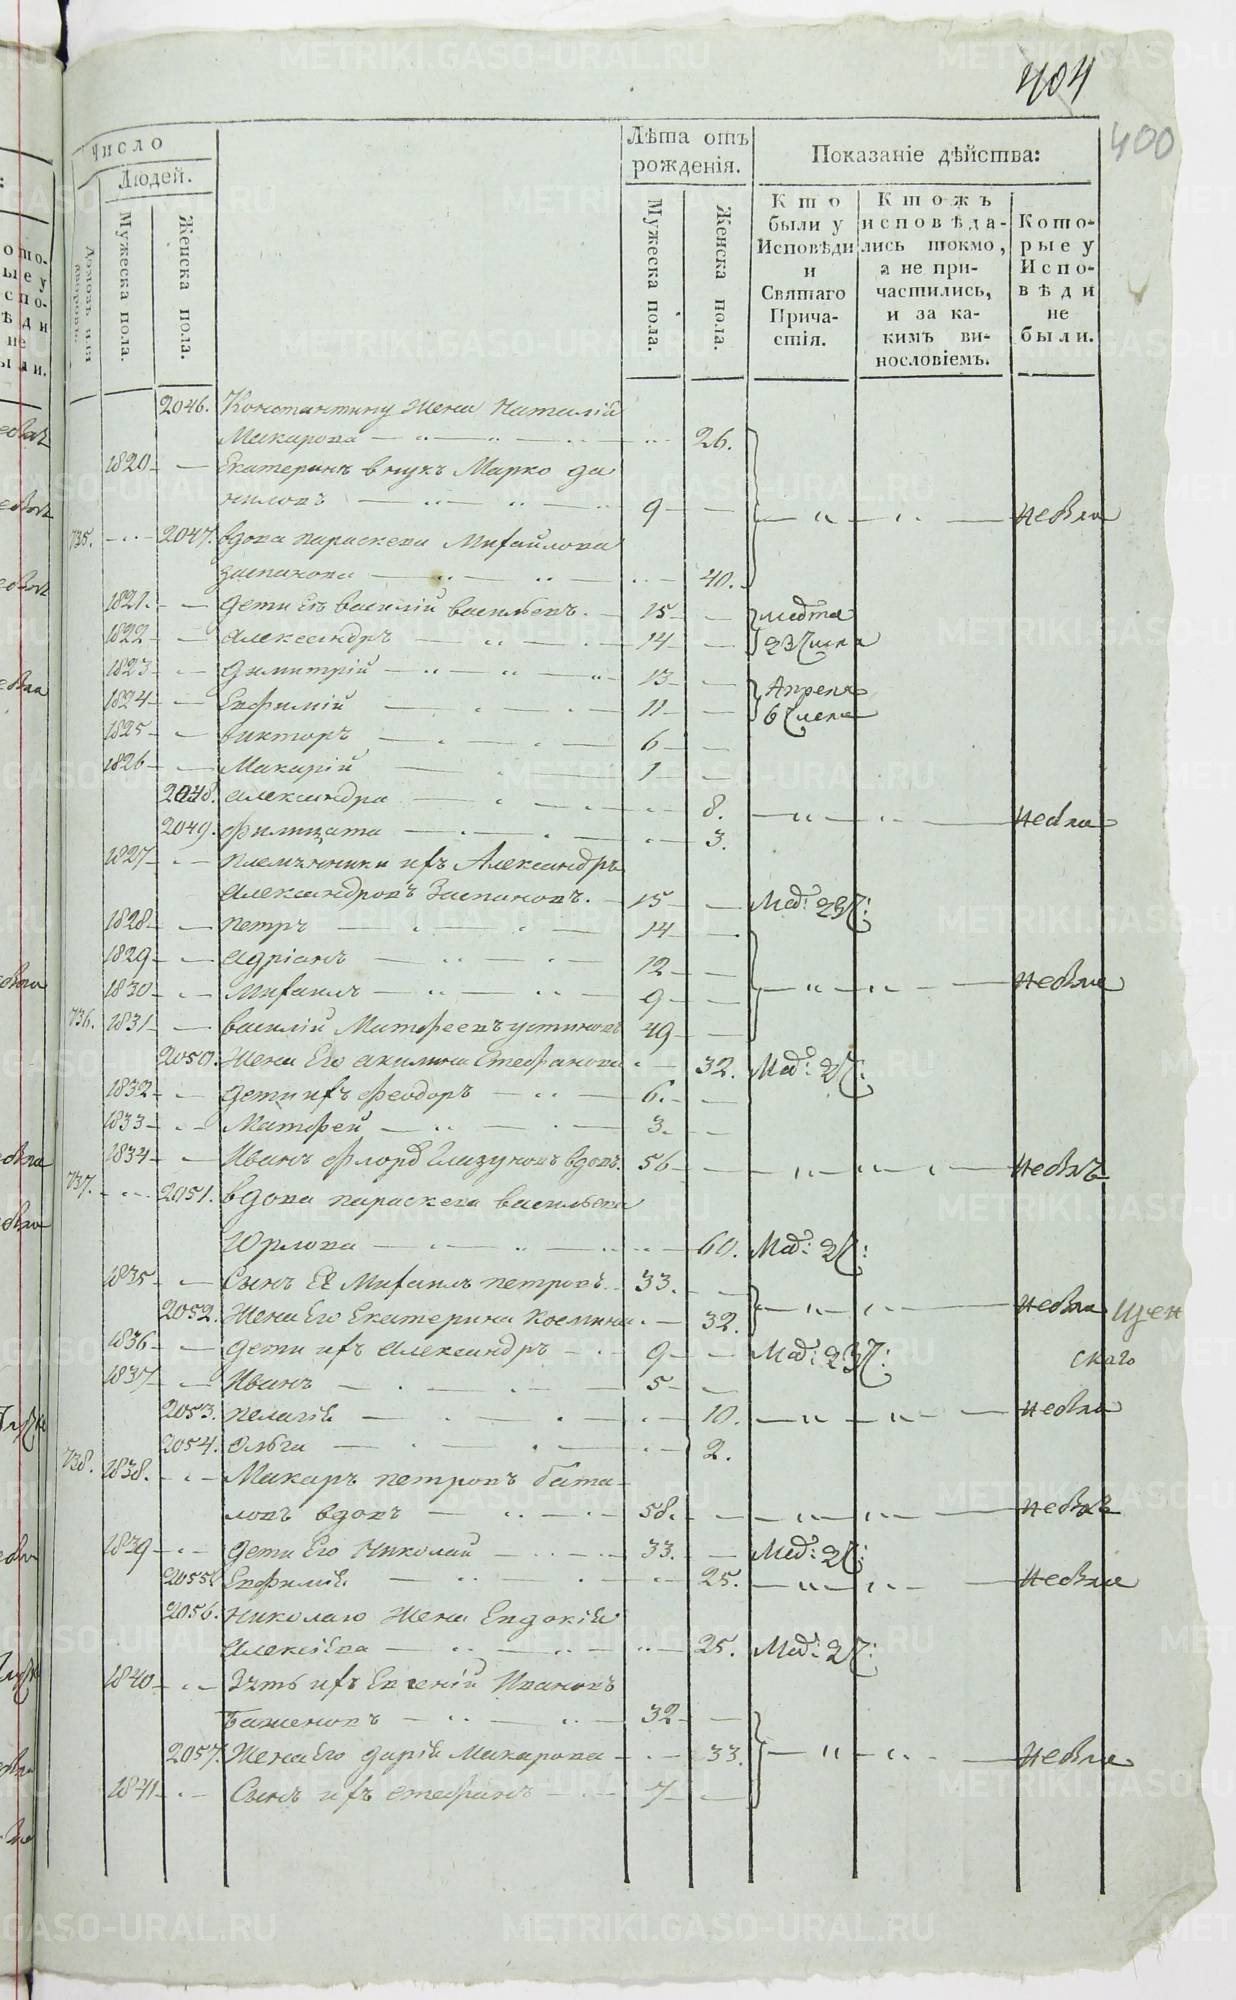 404
400
Число
Людей.
Домовъ или дворовъ.
Мужеска пола.
Женска пола.
Лѣта отъ рожденія.
Мужеска пола.
Женска пола.
Показаніе дѣйства:
Кто были у Исповѣди и Святаго Причастія.
Ктожъ исповѣдались токмо, а не причастились, и за какимъ винословіемъ.
Которые у Исповѣди не были.
2046. Константину жена Наталія
Макарова 26.
1820 Екатеринъ внукъ Марко да
ниловъ 9 небыл
735. 2047. вдова параскева Михайлова
заспанова 40.
1821. дети Ея василій васильевъ. 15 марта
1822 александръ 14 23 числа
1823 димитрій 13 Апреля
1824 Евфимій 11 6 числа
1825 викторъ 6
1826 Макарій 1
2048. александра 8. небыл
2049. филицата 3.
1827 племянники ихъ Александръ
александровъ Заспановъ. 15 Мар: 23 ч:
1828 петръ 14
1829 адріанъ 12
1830 Михаилъ 9 небыли
736. 1831 василій Матфеевъ устиновъ 49
2050. Жена Его акилина Стефанова 32. Мар: 2 ч:
1832 дети ихъ феодоръ 6.
1833 Матфей 3.
1834 Иванъ флоръ Глазуновъ вдовъ. 56 небылъ
737. 2051. вдова параскева васильева
Юрлова 60. Мар: 2 ч:
1835 Сынъ Ея Михаилъ петровъ. 33.
2052. Жена Его Екатерина Космина 32. небыли
1836 дети ихъ александръ 9 Мар: 23 ч:
1837 Иванъ 5
2053. пелагія 10. небыли
2054. Ольга 2.
738. 1838. Макаръ петровъ бата-
ловъ вдовъ 58. небылъ
1839 дети Его Николай 33. Мар: 2 ч:
2055. Евфимія 25. небыла
2056. Николаю жена Евдокія
алексѣева 25. Мар: 2 ч:
1840 Зять ихъ Евгеній Ивановъ
Баженовъ 32
2057. Жена Его дарія Макарова 33. небыли
1841 Сынъ ихъ стефанъ 7
METRIKI.GASO-URAL.RU